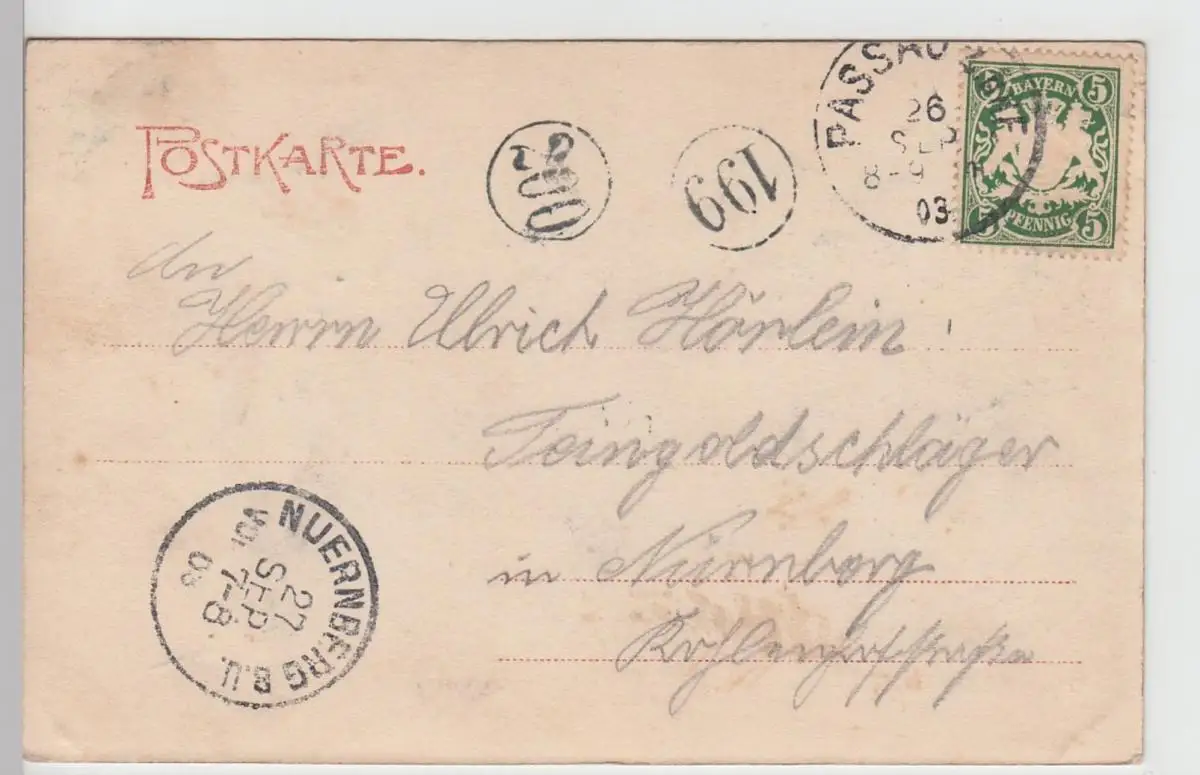 POSTKARTE.
200
199
PASSAU
26
SEP
8-9
03
BAYERN
5 5
5 5
PFENNIG
An
Herrn Ulrich Hörlein!
Feingoldschläger
in Nürnberg
NUERNBERG B.U.
27
SEP
7-8
03